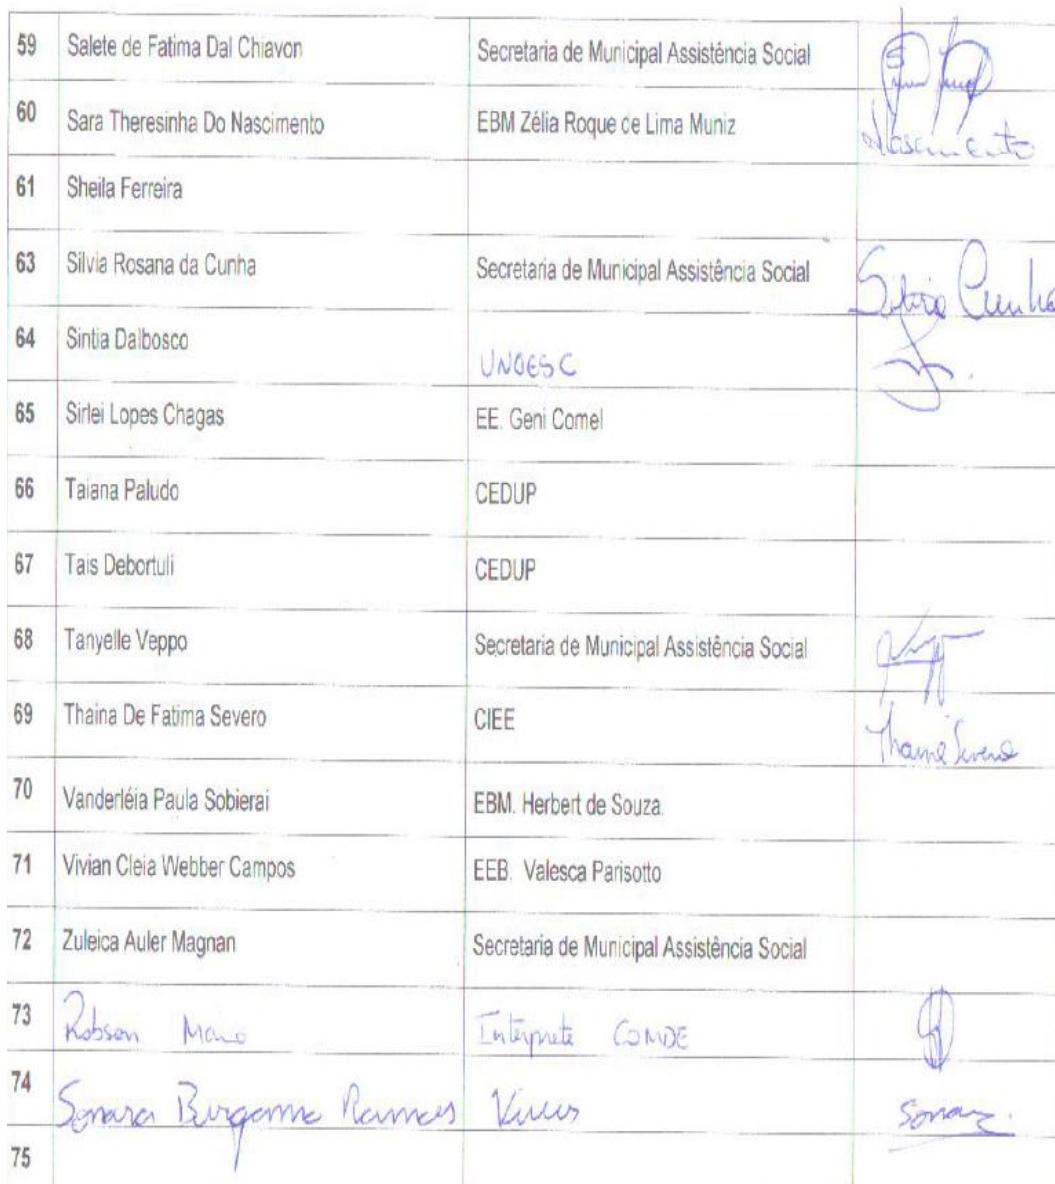 59 Salete de Fatima Dal Chiavon Secretaria de Municipal Assistência Social
60 Sara Theresinha Do Nascimento EBM Zélia Roque de Lima Muniz Nascimento
61 Sheila Ferreira
63 Silvia Rosana da Cunha Secretaria de Municipal Assistência Social Silvia Cunha
64 Sintia Dalbosco UNOESC
65 Sirlei Lopes Chagas EE. Geni Comel
66 Taiana Paludo CEDUP
67 Tais Debortuli CEDUP
68 Tanyelle Veppo Secretaria de Municipal Assistência Social
69 Thaina De Fatima Severo CIEE Thainá Severo
70 Vanderléia Paula Sobierai EBM. Herbert de Souza.
71 Vivian Cleia Webber Campos EEB. Valesca Parisotto
72 Zuleica Auler Magnan Secretaria de Municipal Assistência Social
73 Robson Intérprete COMDE
74 Ramos
75